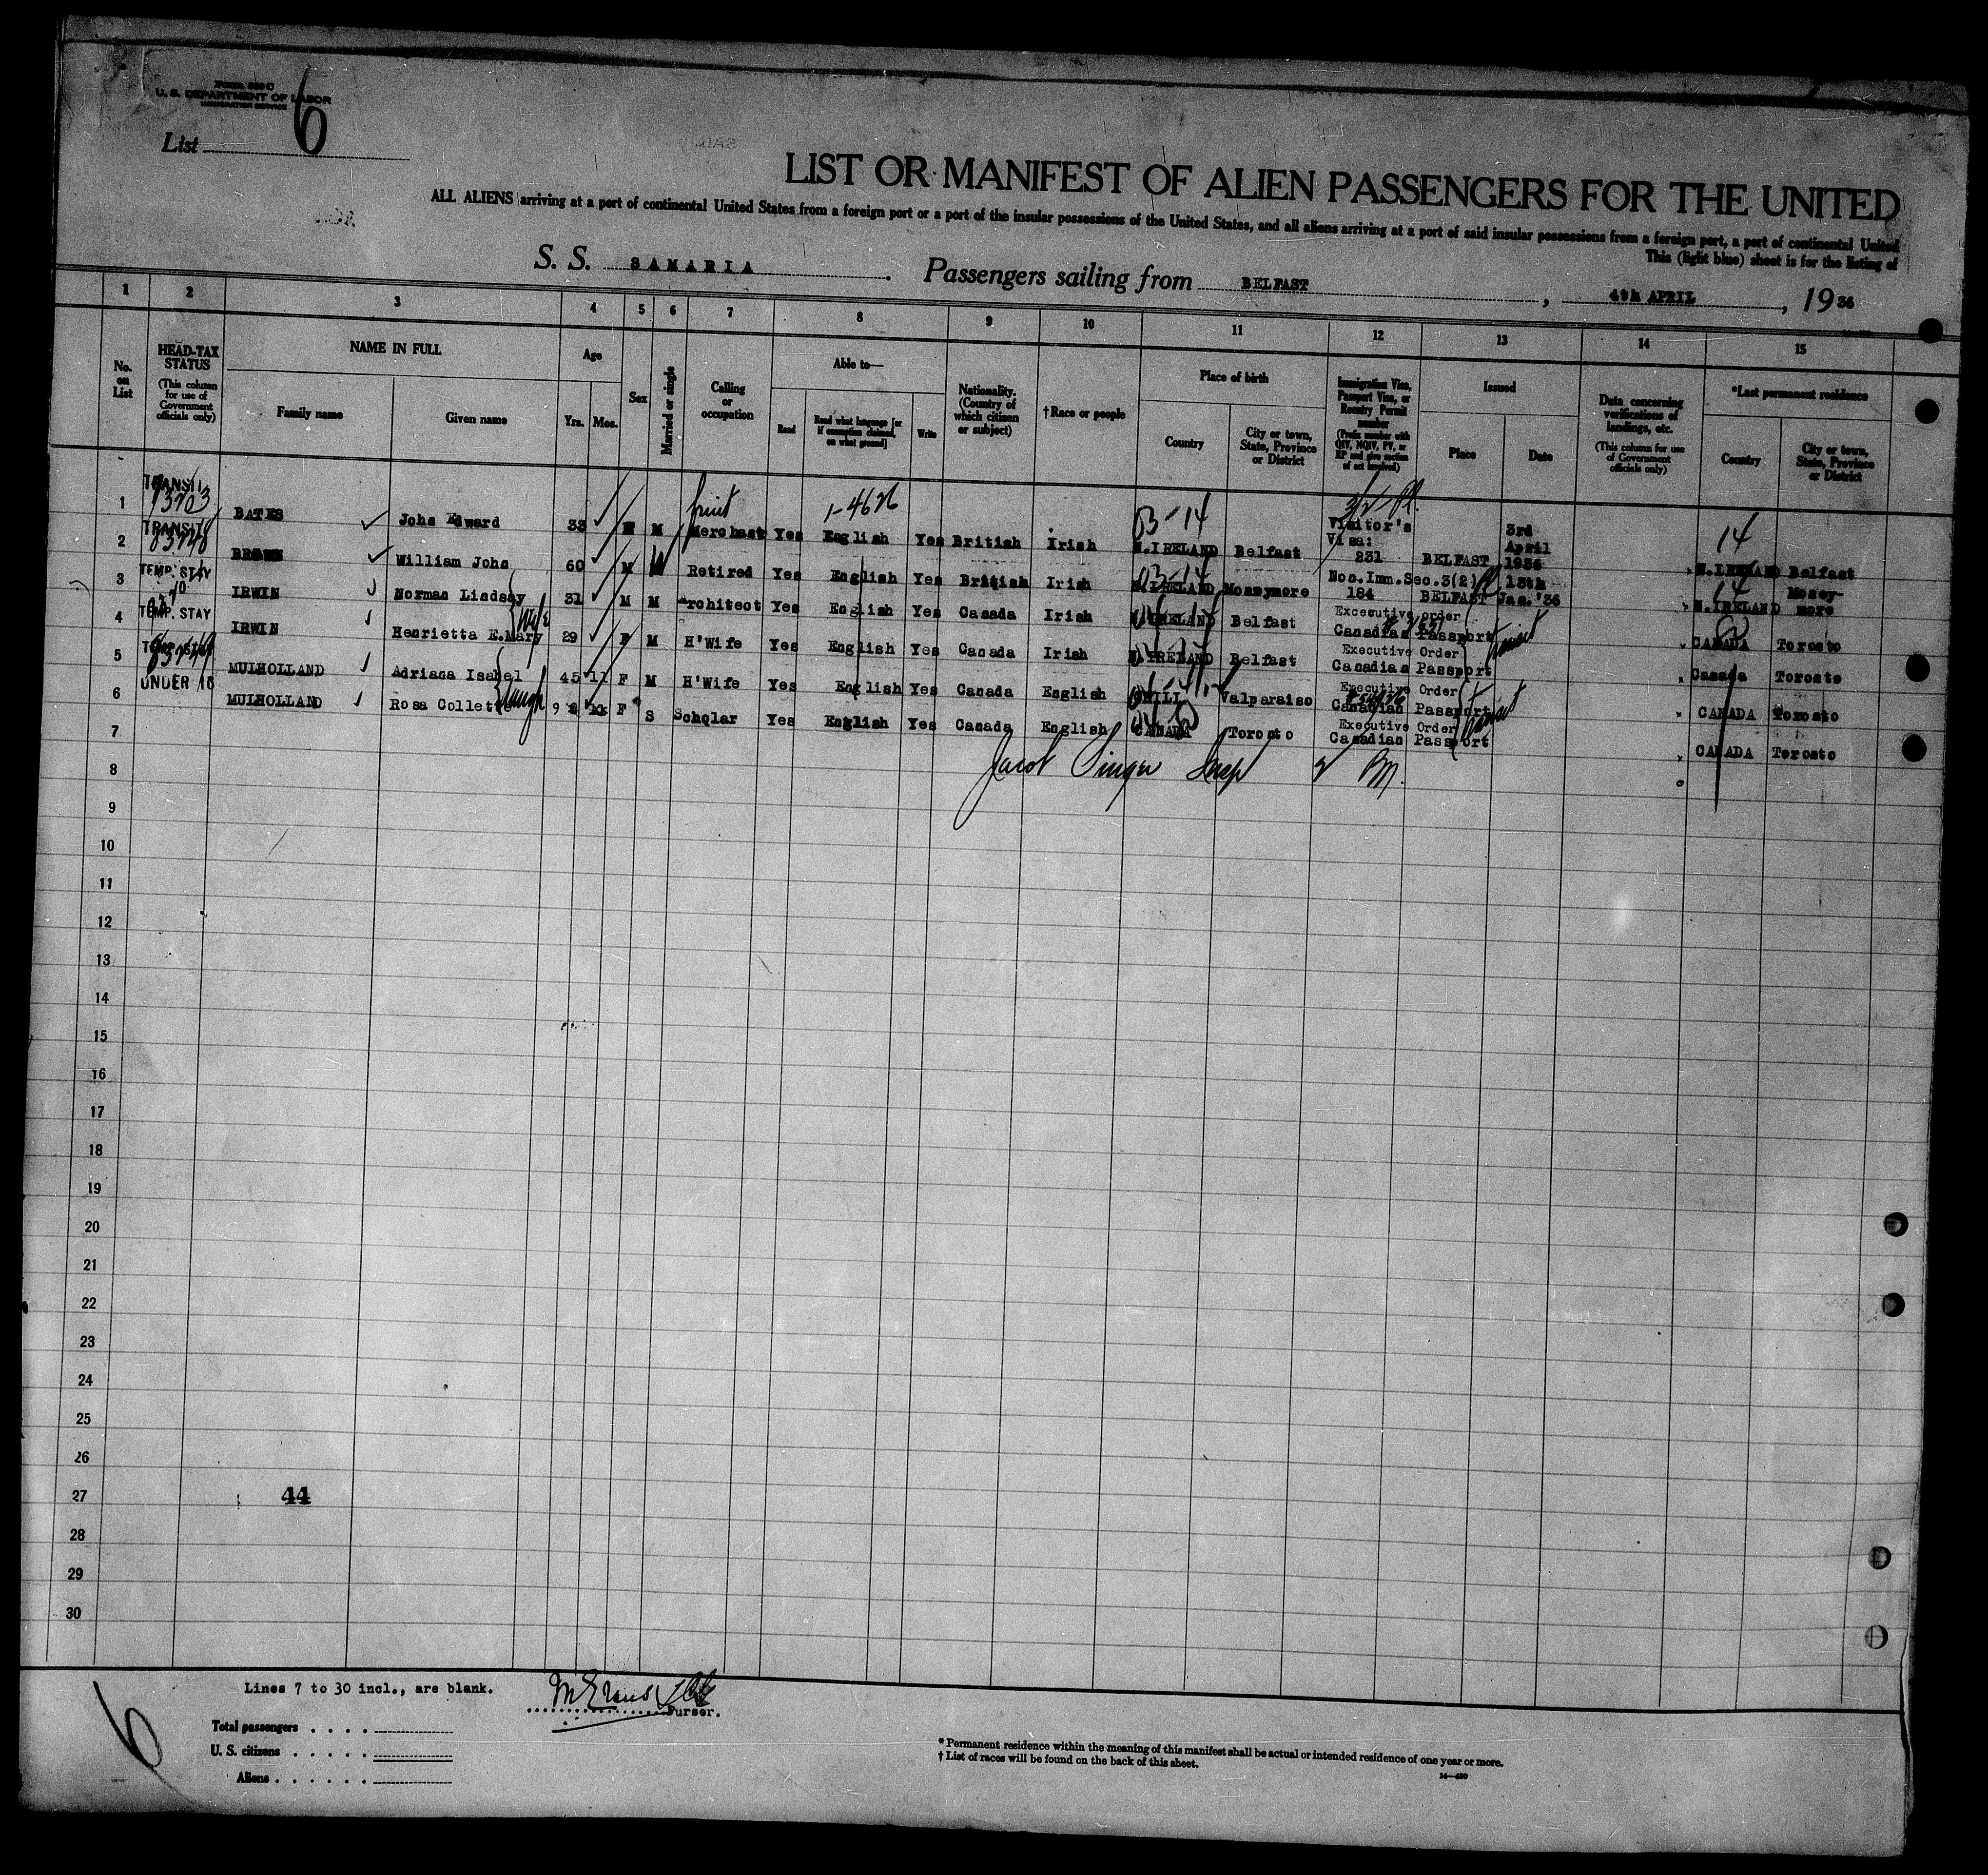 FORM 500 C
U. S. DEPARTMENT OF LABOR
IMMIGRATION SERVICE
List 6
LIST OR MANIFEST OF ALIEN PASSENGERS FOR THE UNITED
ALL ALIENS arriving at a port of continental United States from a foreign port or a port of the insular possessions of the United States, and all aliens arriving at a port of said insular possessions from a foreign port, a port of continental United
This (light blue) sheet is for the listing of
S. S. SAMARIA . Passengers sailing from BELFAST , 4th APRIL , 19 36
1 2 3 4 5 6 7 8 9 10 11 12 13 14 15
No. on List
HEAD-TAX STATUS
(This column for use of Government officials only)
NAME IN FULL
Family name Given name
Age
Yrs. Mos.
Sex
Married or single
Calling or occupation
Able to—
Read Read what language [or if exemption claimed, on what ground] Write
Nationality. (Country of which citizen or subject)
† Race or people
Place of birth
Country City or town, State, Province or District
Immigration Visa, Passport Visa, or Reentry Permit number
(Prefix number with QIV, NQIV, PV, or RP and give section of act involved)
Issued
Place Date
Data concerning verifications of landings, etc.
(This column for use of Government officials only)
*Last permanent residence
Country City or town, State, Province or District
1 TRANSIT BATES John Edward 33 M M fruit Merchant Yes English 1-4626 Yes British Irish N.IRELAND 03-14 Belfast Visitor's Visa: 231 BELFAST 3rd April 1936 14 N.IRELAND Belfast
2 TRANSIT BROWN William John 60 M Retired Yes English Yes British Irish N.IRELAND Moneymore Non.Imm.Sec.3(2) 184 BELFAST 13th Jan.'36 14 N.IRELAND Money-more
3 TEMP. STAY IRWIN Norman Lindsay 31 M M Architect Yes English Yes Canada Irish N.IRELAND Belfast Excecutive order Canadian Passport CANADA Toronto
4 TEMP. STAY IRWIN Henrietta E.Mary Wife 29 F M H'Wife Yes English Yes Canada Irish N.IRELAND Belfast Executive Order Canadian Passport transit Canada Toronto
5 MULHOLLAND Adriana Isabel 45 11 F M H'Wife Yes English Yes Canada English CHILI Valparaiso Executive Order Canadian Passport CANADA Toronto
6 UNDER 16 MULHOLLAND Rosa Collette daugh 9 F S Scholar Yes English Yes Canada English CANADA Toronto Executive Order Canadian Passport transit CANADA Toronto
7
8
Jacob Singer Insp
9
10
11
12
13
14
15
16
17
18
19
20
21
22
23
24
25
26
27
44
28
29
30
Lines 7 to 30 incl., are blank.
Purser.
6
Total passengers . . . .
U. S. citizens . . . . .
Aliens . . . . . .
* Permanent residence within the meaning of this manifest shall be actual or intended residence of one year or more.
† List of races will be found on the back of this sheet.
14—430